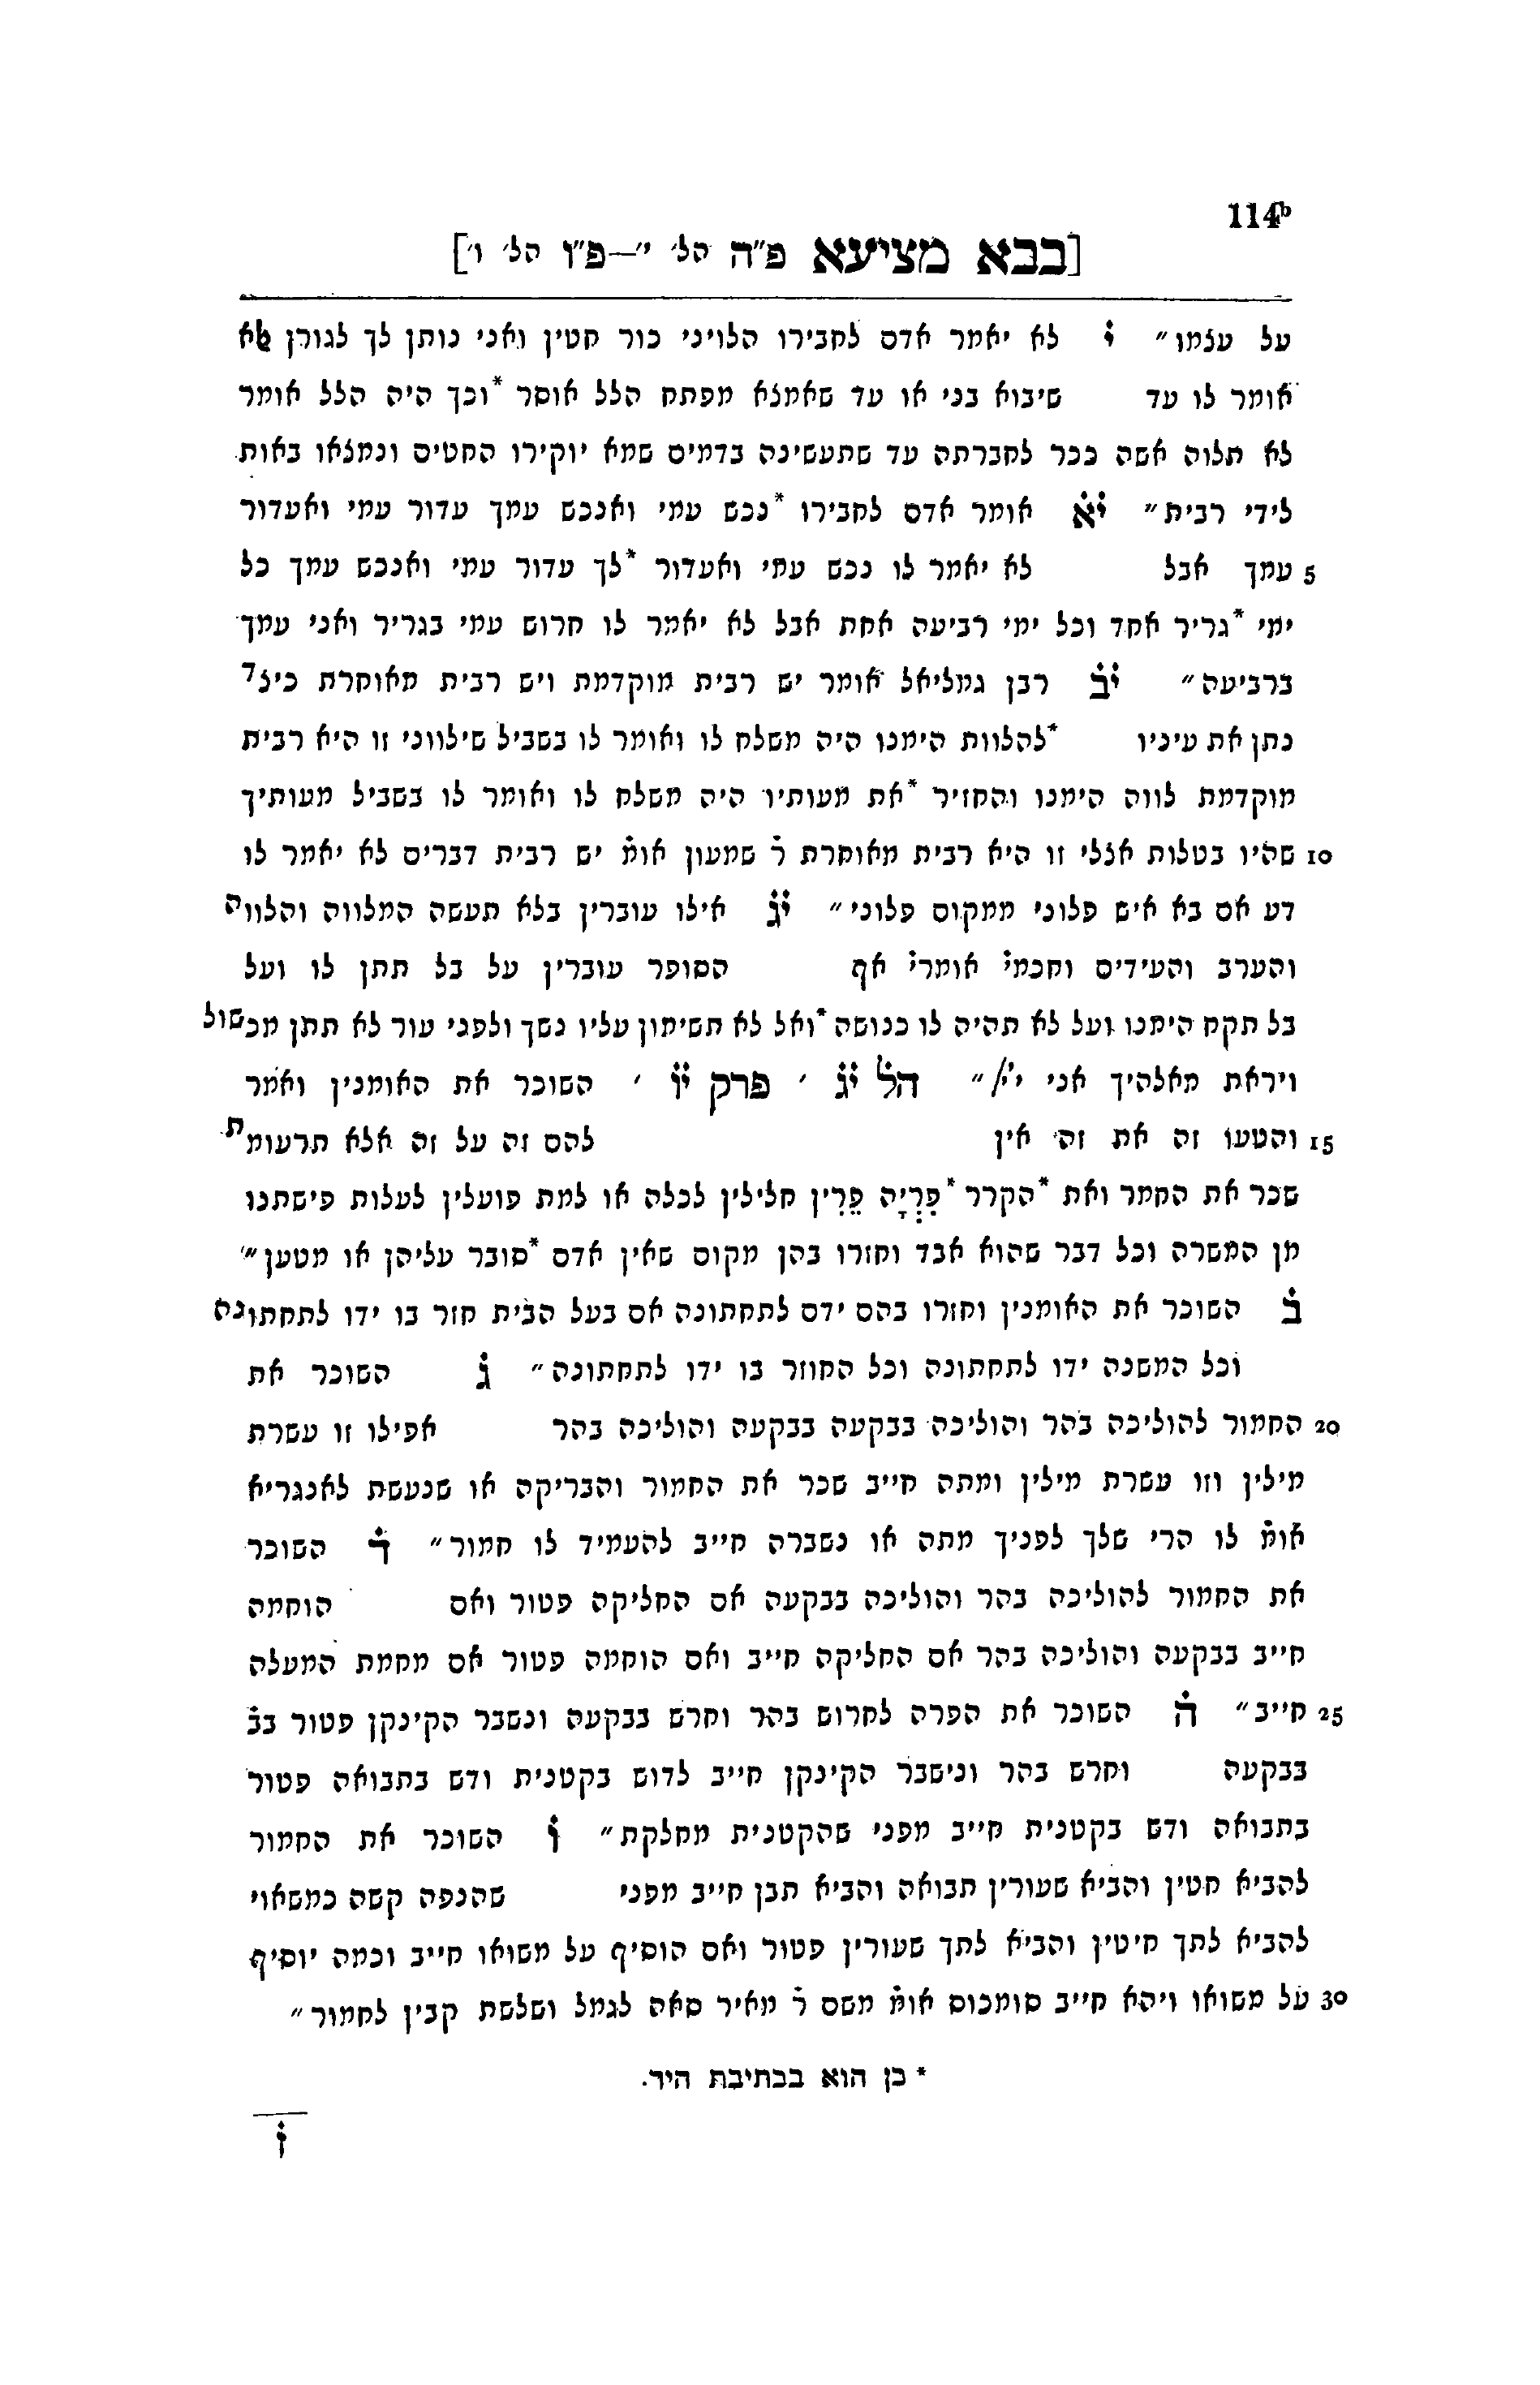 114b
[בבא מציעא פ״ה הל׳ י׳—פ״ו הל׳ ו׳]
על עצמו״ י לא יאמר אדם לחבירו הלויני כור חטין ואני נותן לך לגורן לא
אומר לו עד שיבוא בני או עד שאמצא מפתח הלל אוסר *וכך היה הלל אומר
לא תלוה אשה ככר לחברתה עד שתעשינה בדמים שמא יוקירו החטים ונמצאו באות
לידי רבית״ יא אומר אדם לחבירו *נכש עמי ואנכש עמך עדור עמי ואעדור
5 עמך אבל לא יאמר לו נכש עמי ואעדור *לך עדור עמי ואנכש עמך כל
ימי *גריר אחד וכל ימי רביעה אחת אבל לא יאמר לו חרוש עמי בגריר ואני עמך
ברביעה״ יב רבן גמליאל אומר יש רבית מוקדמת ויש רבית מאוחרת כיצד
נתן את עיניו *להלוות הימנו היה משלח לו ואומר לו בשביל שילווני זו היא רבית
מוקדמת לווה הימנו והחזיר *את מעותיו היה משלח לו ואומר לו בשביל מעותיך
10 שהיו בטלות אצלי זו היא רבית מאוחרת ר̇ שמעון אומ̇ יש רבית דברים לא יאמר לו
דע אם בא איש פלוני ממקום פלוני״ יג אילו עוברין בלא תעשה המלווה והלווה
והערב והעידים וחכמי̇ אומרי̇ אף הסופר עוברין על בל תתן לו ועל
בל תקח הימנו ועל לא תהיה לו כנושה *ואל לא תשימון עליו נשך ולפני עור לא תתן מכשול
ויראת מאלהיך אני ייי״ הל̇ יג ׳ פרק יו ׳ השוכר את האומנין ואמר
15 והטעו זה את זה אין להם זה על זה אלא תרעומת
שכר את החמר ואת *הקרר *פִּרְיָה פֵרִין חלילין לכלה או למת פועלין לעלות פישתנו
מן המשרה וכל דבר שהוא אבד וחזרו בהן מקום שאין אדם *סובר עליהן או מטען״
ב השוכר את האומנין וחזרו בהם ידם לתחתונה אם בעל הבית חזר בו ידו לתחתונה
וכל המשנה ידו לתחתונה וכל החוזר בו ידו לתחתונה״ ג השוכר את
20 החמור להוליכה בהר והוליכה בבקעה בבקעה והוליכה בהר אפילו זו עשרת
מילין וזו עשרת מילין ומתה חייב שכר את החמור והבריקה או שנעשת לאנגריא
אומ̇ לו הרי שלך לפניך מתה או נשברה חייב להעמיד לו חמור״ ד השוכר
את החמור להוליכה בהר והוליכה בבקעה אם החליקה פטור ואם הוחמה
חייב בבקעה והוליכה בהר אם החליקה חייב ואם הוחמה פטור אם מחמת המעלה
25 חייב״ ה השוכר את הפרה לחרוש בהר וחרש בבקעה ונשבר הקינקן פטור בב̇
בבקעה וחרש בהר ונישבר הקינקן חייב לדוש בקטנית ודש בתבואה פטור
בתבואה ודש בקטנית חייב מפני שהקטנית מחלקת״ ו השוכר את החמור
להביא חטין והביא שעורין תבואה והביא תבן חייב מפני שהנפה קשה כמשאוי
להביא לתך חיטין והביא לתך שעורין פטור ואם הוסיף על משואו חייב וכמה יוסיף
30 על משואו ויהא חייב סומכוס אומ̇ משם ר̇ מאיר סאה לגמל ושלשת קבין לחמור״
* כן הוא בכתיבת היד.
ז